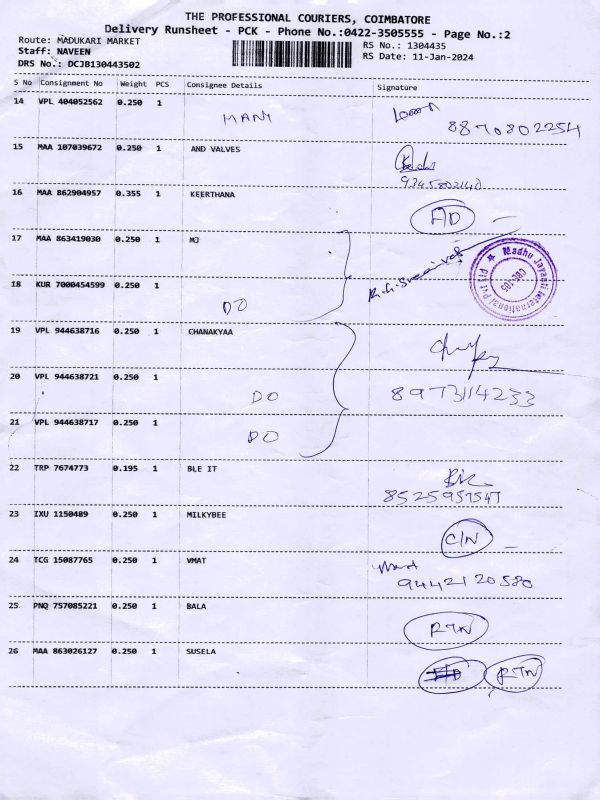 THE PROFESSIONAL COURIERS, COIMBATORE
Delivery Runsheet - PCK - Phone No.:0422-3505555 - Page No.:2
Route: MADUKARI MARKET
RS No.: 1304435
Staff: NAVEEN
RS Date: 11-Jan-2024
DRS No.: DCJB130443502
S No Consignment No Weight PCS Consignee Details Signature
14 VPL 404052562 0.250 1 MANY
8870802254
15 MAA 107039672 0.250 1 AND VALVES
9345802140
16 MAA 862904957 0.355 1 KEERTHANA
A/D
17 MAA 863419030 0.250 1 MJ
Madhu Jayanti International Pvt Ltd
CBE-105
18 KUR 7000454599 0.250 1
DO
19 VPL 944638716 0.250 1 CHANAKYAA
20 VPL 944638721 0.250 1 DO 8973114233
21 VPL 944638717 0.250 1 DO
22 TRP 7674773 0.195 1 BLE IT
8525957547
23 IXU 1150489 0.250 1 MILKYBEE
C/N
24 TCG 15087765 0.250 1 VMAT
9442120580
25 PNQ 757085221 0.250 1 BALA
RTN
26 MAA 863026127 0.250 1 SUSELA
RTN